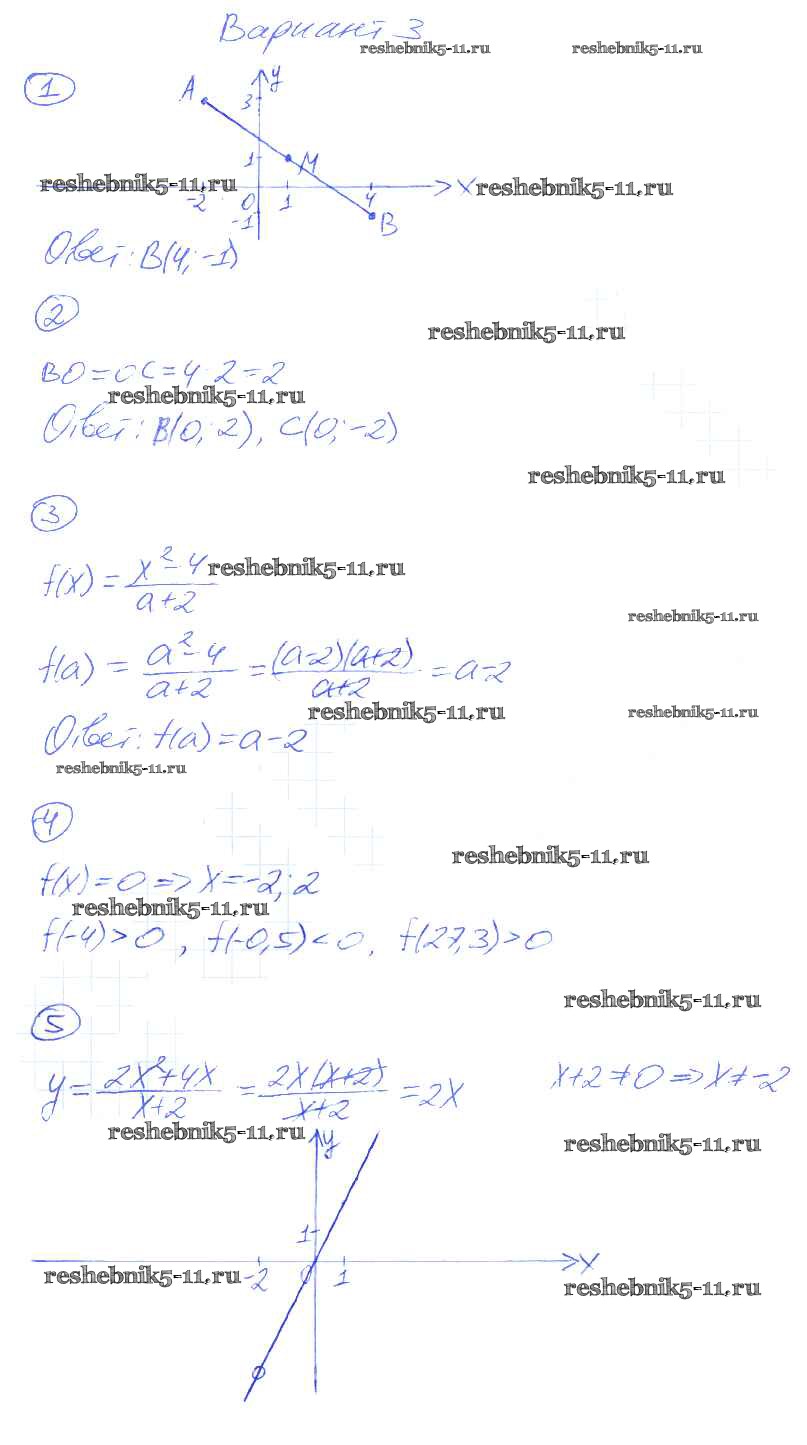 Вариант 3
reshebnik5-11.ru reshebnik5-11.ru
1
A y
3
1 M
reshebnik5-11.ru X reshebnik5-11.ru
-2 0 1 4
-1 B
Ответ: B(4; -1)
2
reshebnik5-11.ru
BO = OC = 4 : 2 = 2
reshebnik5-11.ru
Ответ: B(0; 2), C(0; -2)
reshebnik5-11.ru
3
f(x) = (x² - 4)/(a + 2) reshebnik5-11.ru
reshebnik5-11.ru
f(a) = (a² - 4)/(a + 2) = ((a-2)(a+2))/(a+2) = a - 2
reshebnik5-11.ru reshebnik5-11.ru
Ответ: f(a) = a - 2
reshebnik5-11.ru
4
reshebnik5-11.ru
f(x) = 0 => x = -2; 2
reshebnik5-11.ru
f(-4) > 0, f(-0,5) < 0, f(27,3) > 0
reshebnik5-11.ru
5
y = (2x² + 4x)/(x + 2) = (2x(x+2))/(x+2) = 2x x + 2 ≠ 0 => x ≠ -2
reshebnik5-11.ru y reshebnik5-11.ru
1
X
reshebnik5-11.ru -2 0 1 reshebnik5-11.ru